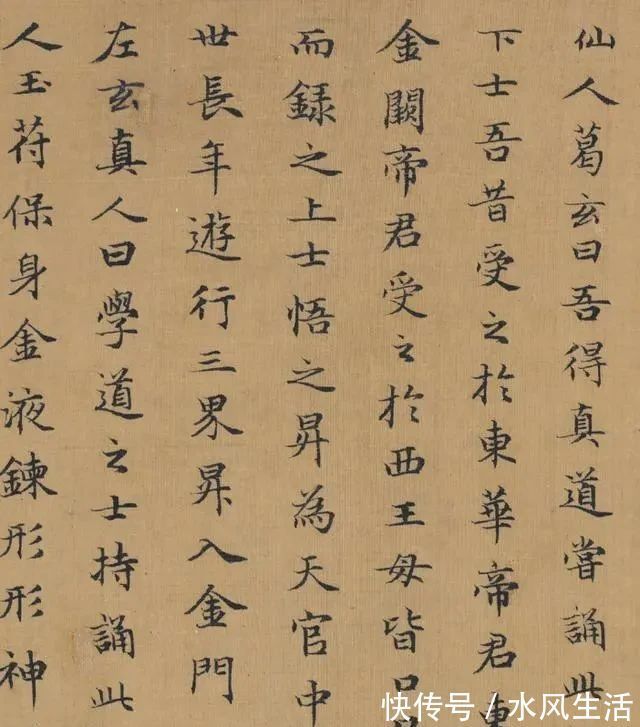 仙人葛玄曰吾得真道嘗誦此
下士吾昔受之於東華帝君東
金闕帝君受之於西王母皆口
而録之上士悟之昇為天官中
世長年遊行三界昇入金門
左玄真人曰學道之士持誦此
人玉苻保身金液鍊形形神
快传号/水风生活